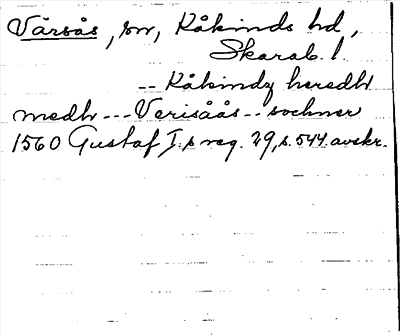 Värsås, sn, Kåkinds hd,
Skarab. l.
-- Kåkindz heredh
medh --- Verisåås -- sochner
1560 Gustaf I:s reg. 29, s. 544 avskr.